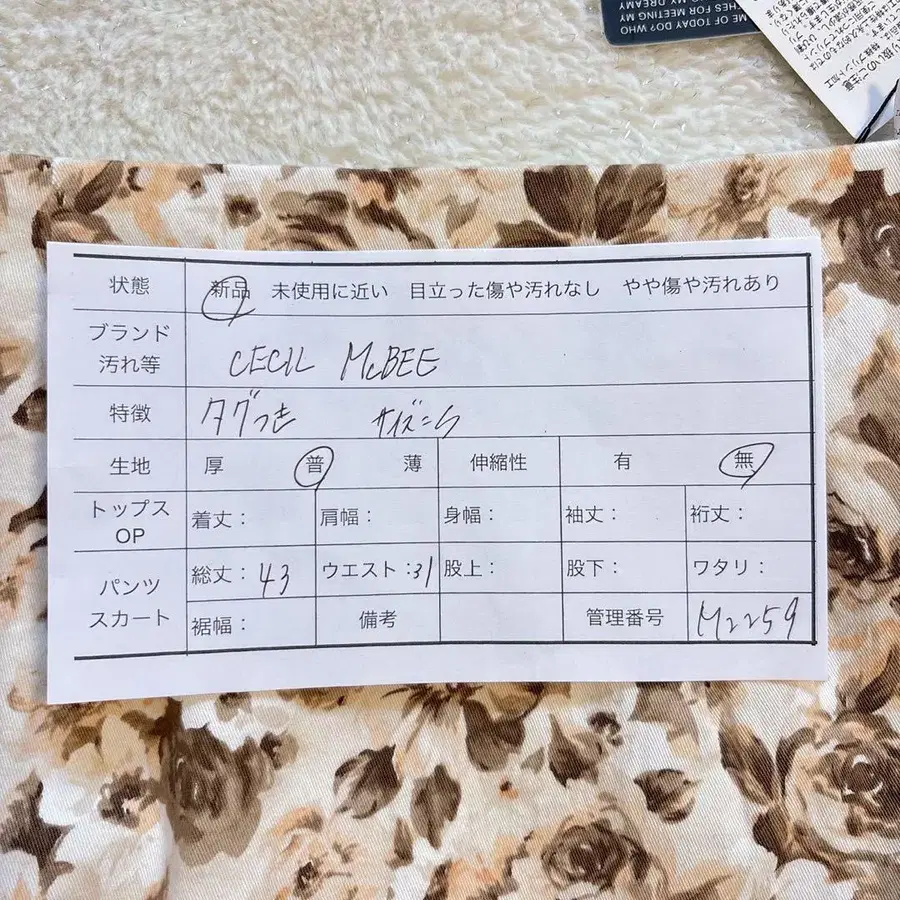 ME OF TODAY DO? WHO
HES FOR MEETING MY
O MY DREAMY
り扱いのご注意
状態 新品 未使用に近い 目立った傷や汚れなし やや傷や汚れあり
ブランド
汚れ等
CECIL McBEE
特徴 タグつき サイズ=S
生地 厚 普 薄 伸縮性 有 無
トップス
OP
着丈: 肩幅: 身幅: 袖丈: 裄丈:
パンツ
スカート
総丈: 43 ウエスト:31 股上: 股下: ワタリ:
裾幅: 備考 管理番号 M2259